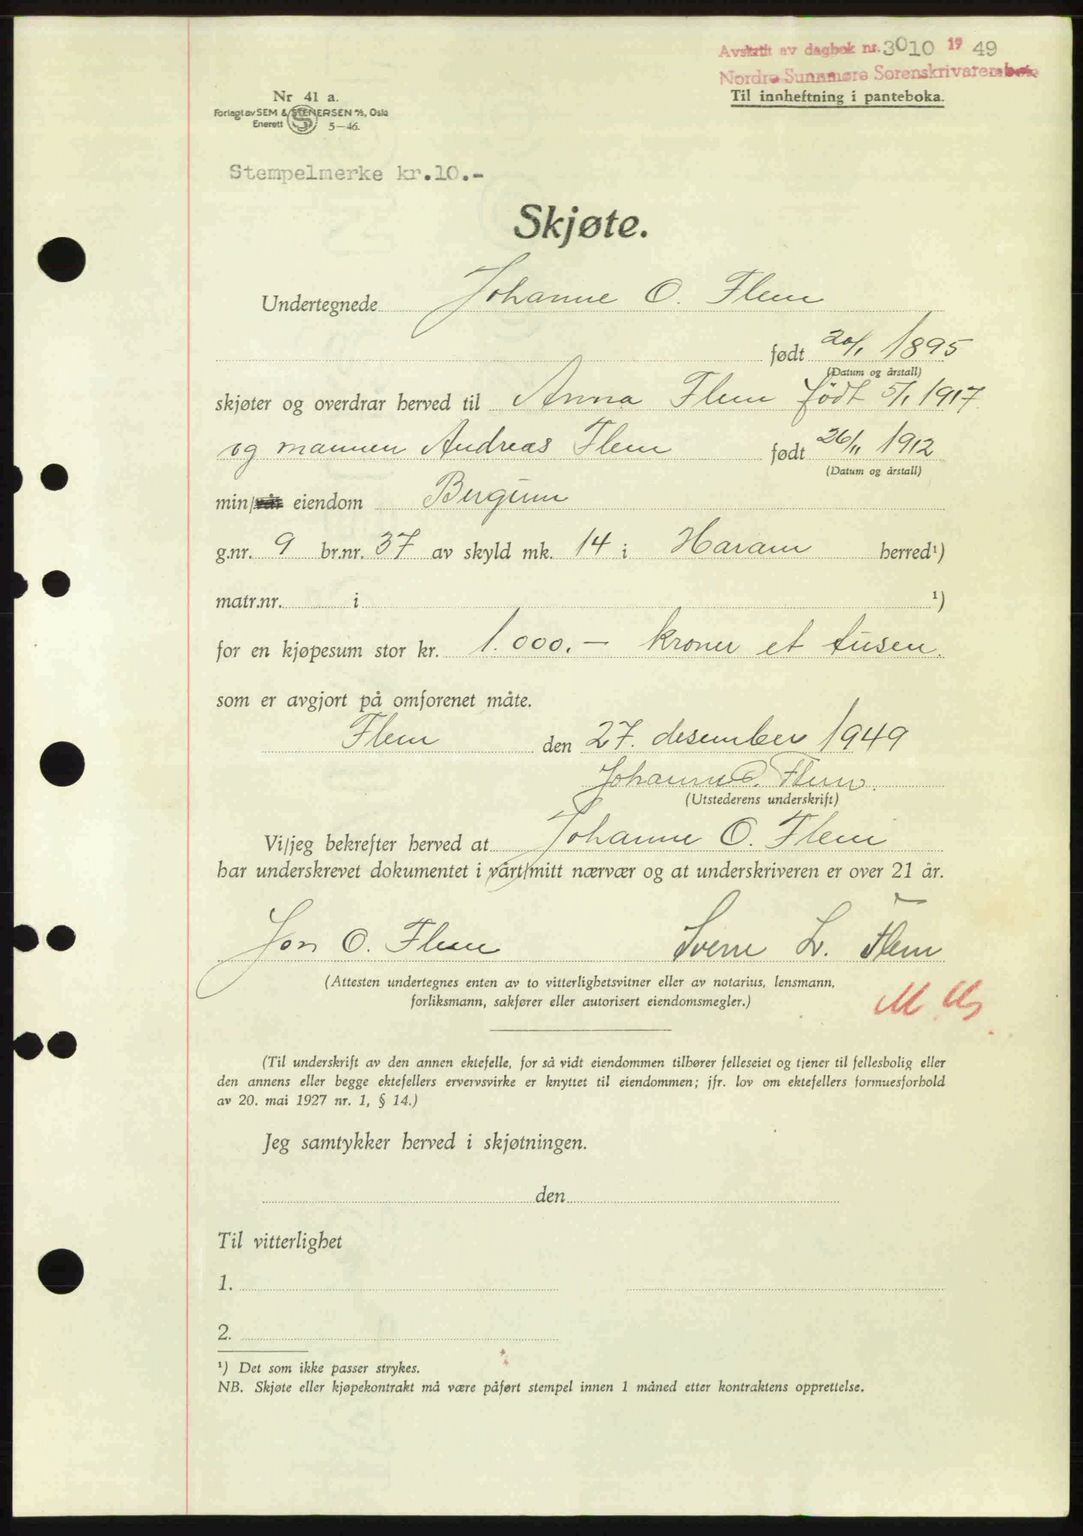 Avskrift av dagbok nr. 3010 19 49
Nordre Sunnmøre Sorenskriverembete
Til innheftning i panteboka.
Nr 41 a.
Forlagt av SEM & STENERSEN A/S, Oslo
Enerett 5-46.
Stempelmerke kr.10.-
Skjøte.
Undertegnede Johanne O. Flem
født 20/1 1895
(Datum og årstall)
skjøter og overdrar herved til Anna Flem født 5/1 1917
og mannen Andreas Flem født 26/11 1912
(Datum og årstall)
min/vår eiendom Bergum
g.nr. 9 br.nr. 37 av skyld mk. 14 i Haram herred¹)
matr.nr. i ¹)
for en kjøpesum stor kr. 1.000.- kroner et tusen.
som er avgjort på omforenet måte.
Flem den 27. desember 1949
Johanne O. Flem.
(Utstederens underskrift)
Vi/jeg bekrefter herved at Johanne O. Flem
har underskrevet dokumentet i vårt/mitt nærvær og at underskriveren er over 21 år.
Jon O. Flem Sverre L. Flem
(Attesten undertegnes enten av to vitterlighetsvitner eller av notarius, lensmann,
forliksmann, sakfører eller autorisert eiendomsmegler.)
(Til underskrift av den annen ektefelle, for så vidt eiendommen tilhører felleseiet og tjener til fellesbolig eller
den annens eller begge ektefellers ervervsvirke er knyttet til eiendommen; jfr. lov om ektefellers formuesforhold
av 20. mai 1927 nr. 1, § 14.)
Jeg samtykker herved i skjøtningen.
den
Til vitterlighet
1.
2.
¹) Det som ikke passer strykes.
NB. Skjøte eller kjøpekontrakt må være påført stempel innen 1 måned etter kontraktens opprettelse.